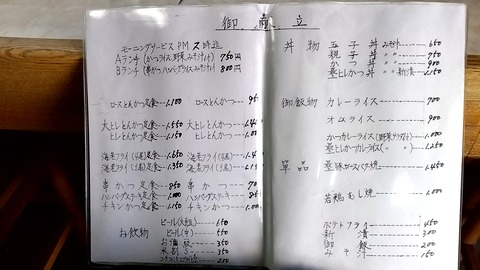 御献立
モーニングサービス PM 2時迄
Aランチ(かつライス,野菜,みそ汁付) 750円
Bランチ(串かつ,ハンバーグライス,みそ汁付) 800円
ロースとんかつ定食---1,100
大ヒレとんかつ定食---1,550
ヒレとんかつ定食---1,100
海老フライ(4尾)定食---1,650
海老フライ(3尾)定食---1,350
串かつ定食---850
ハンバーグ定食---1,000
チキンかつ定食---1,150
お飲物
ビール(大瓶)---650
ビール(中)---550
お酒---350
ロースとんかつ---95
大ヒレとんかつ---1,4
ヒレとんかつ---1,0
海老フライ(4尾)---1,4
海老フライ(3尾)---1,1
串かつ---70
ハンバーグステーキ---85
チキンかつ---1,0
丼物 玉子丼 みそ汁---650
親子丼---750
かつ丼---900
重ヒレかつ丼 新漬---1,150
御飯物 カレーライス---700
オムライス---900
かつカレーライス(野菜サラダ付)---1,000
重ヒレかつカレーライス(〃 〃)---1,250
単品 重豚ロースバター焼---1,450
若鶏むし焼---1,000
ポテトフライ---450
新漬---300
御飯---200
みそ汁---150